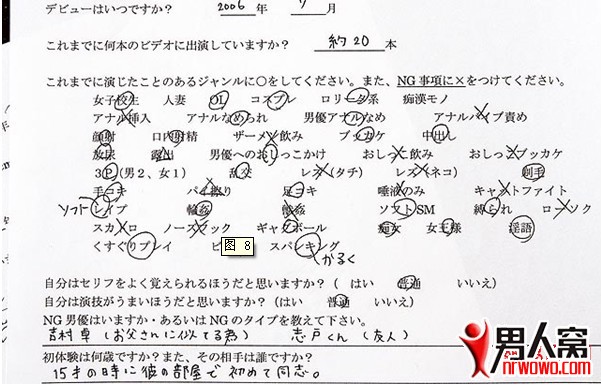 デビューはいつですか? 2006 年 7 月
これまでに何本のビデオに出演していますか? 約20 本
これまでに演じたことのあるジャンルに○をしてください。また、NG事項に×をつけてください。
女子校生 人妻 OL コスプレ ロリータ系 痴漢モノ
アナル挿入 アナルなめられ 男優アナルなめ アナルバイブ責め
顔射 口内射精 ザーメン飲み ブッカケ 中出し
放尿 露出 男優へのおしっこかけ おしっこ飲み おしっこブッカケ
3P(男2、女1) 乱交 レズ(タチ) レズ(ネコ) 剃毛
手コキ パイ擦り 足コキ 唾液のみ キャットファイト
ソフト レイプ 輪姦 ソフトSM 縛られ ローソク
スカトロ ノーズフック ギャグボール 痴女 女王様 淫語
くすぐりプレイ 图 8 スパンキング
かるく
自分はセリフをよく覚えられるほうだと思いますか? (はい 普通 いいえ)
自分は演技がうまいほうだと思いますか? (はい 普通 いいえ)
NG男優はいますか・あるいはNGのタイプを教えて下さい。
吉村卓(お父さんに似てる為) 志戸くん(友人)
男人窝
nrwowo.com